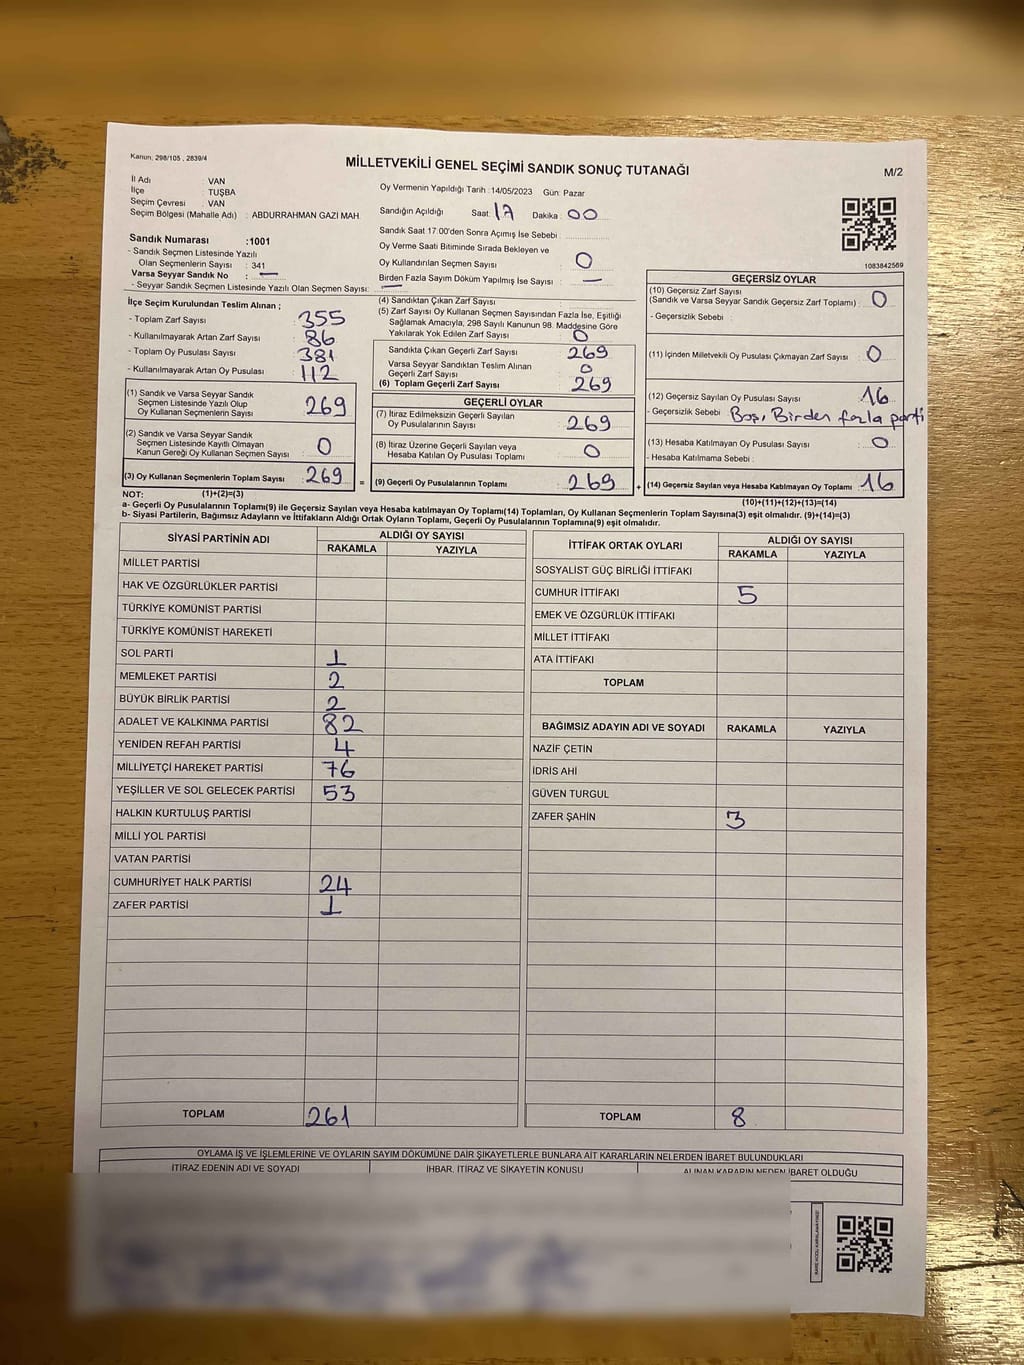 Kanun: 298/105 , 2839/4
MİLLETVEKİLİ GENEL SEÇİMİ SANDIK SONUÇ TUTANAĞI
M/2
İl Adı : VAN
İlçe : TUŞBA
Seçim Çevresi : VAN
Seçim Bölgesi (Mahalle Adı) : ABDURRAHMAN GAZI MAH.
Oy Vermenin Yapıldığı Tarih :14/05/2023 Gün: Pazar
Sandığın Açıldığı Saat: 17 Dakika : 00
Sandık Saat 17:00'den Sonra Açımış İse Sebebi :
Oy Verme Saati Bitiminde Sırada Bekleyen ve
Oy Kullandırılan Seçmen Sayısı : 0
Birden Fazla Sayım Döküm Yapılmış İse Sayısı : —
1083842569
Sandık Numarası :1001
- Sandık Seçmen Listesinde Yazılı
Olan Seçmenlerin Sayısı : 341
Varsa Seyyar Sandık No : —
- Seyyar Sandık Seçmen Listesinde Yazılı Olan Seçmen Sayısı: —
İlçe Seçim Kurulundan Teslim Alınan ;
- Toplam Zarf Sayısı : 355
- Kullanılmayarak Artan Zarf Sayısı : 86
- Toplam Oy Pusulası Sayısı : 381
- Kullanılmayarak Artan Oy Pusulası : 112
(1) Sandık ve Varsa Seyyar Sandık
Seçmen Listesinde Yazılı Olup
Oy Kullanan Seçmenlerin Sayısı : 269
(2) Sandık ve Varsa Seyyar Sandık
Seçmen Listesinde Kayıtlı Olmayan
Kanun Gereği Oy Kullanan Seçmen Sayısı : 0
(3) Oy Kullanan Seçmenlerin Toplam Sayısı : 269
(1)+(2)=(3)
(4) Sandıktan Çıkan Zarf Sayısı :
(5) Zarf Sayısı Oy Kullanan Seçmen Sayısından Fazla İse, Eşitliği
Sağlamak Amacıyla, 298 Sayılı Kanunun 98. Maddesine Göre
Yakılarak Yok Edilen Zarf Sayısı : 0
Sandıkta Çıkan Geçerli Zarf Sayısı : 269
Varsa Seyyar Sandıktan Teslim Alınan
Geçerli Zarf Sayısı : 0
(6) Toplam Geçerli Zarf Sayısı : 269
GEÇERLİ OYLAR
(7) İtiraz Edilmeksizin Geçerli Sayılan
Oy Pusulalarının Sayısı : 269
(8) İtiraz Üzerine Geçerli Sayılan veya
Hesaba Katılan Oy Pusulası Toplamı : 0
= (9) Geçerli Oy Pusulalarının Toplamı : 269
GEÇERSİZ OYLAR
(10) Geçersiz Zarf Sayısı
(Sandık ve Varsa Seyyar Sandık Geçersiz Zarf Toplamı) : 0
- Geçersizlik Sebebi :
(11) İçinden Milletvekili Oy Pusulası Çıkmayan Zarf Sayısı : 0
(12) Geçersiz Sayılan Oy Pusulası Sayısı : 16
- Geçersizlik Sebebi : Boş, Birden fazla parti
(13) Hesaba Katılmayan Oy Pusulası Sayısı : 0
- Hesaba Katılmama Sebebi :
+ (14) Geçersiz Sayılan veya Hesaba Katılmayan Oy Toplamı : 16
(10)+(11)+(12)+(13)=(14)
NOT:
a- Geçerli Oy Pusulalarının Toplamı(9) ile Geçersiz Sayılan veya Hesaba katılmayan Oy Toplamı(14) Toplamları, Oy Kullanan Seçmenlerin Toplam Sayısına(3) eşit olmalıdır. (9)+(14)=(3)
b- Siyasi Partilerin, Bağımsız Adayların ve İttifakların Aldığı Ortak Oyların Toplamı, Geçerli Oy Pusulalarının Toplamına(9) eşit olmalıdır.
SİYASİ PARTİNİN ADI ALDIĞI OY SAYISI
RAKAMLA YAZIYLA
MİLLET PARTİSİ
HAK VE ÖZGÜRLÜKLER PARTİSİ
TÜRKİYE KOMÜNİST PARTİSİ
TÜRKİYE KOMÜNİST HAREKETİ
SOL PARTİ 1
MEMLEKET PARTİSİ 2
BÜYÜK BİRLİK PARTİSİ 2
ADALET VE KALKINMA PARTİSİ 82
YENİDEN REFAH PARTİSİ 4
MİLLİYETÇİ HAREKET PARTİSİ 76
YEŞİLLER VE SOL GELECEK PARTİSİ 53
HALKIN KURTULUŞ PARTİSİ
MİLLİ YOL PARTİSİ
VATAN PARTİSİ
CUMHURİYET HALK PARTİSİ 24
ZAFER PARTİSİ 1
TOPLAM 261
İTTİFAK ORTAK OYLARI ALDIĞI OY SAYISI
RAKAMLA YAZIYLA
SOSYALIST GÜÇ BİRLİĞİ İTTİFAKI
CUMHUR İTTİFAKI 5
EMEK VE ÖZGÜRLÜK İTTİFAKI
MİLLET İTTİFAKI
ATA İTTİFAKI
TOPLAM
BAĞIMSIZ ADAYIN ADI VE SOYADI RAKAMLA YAZIYLA
NAZİF ÇETİN
İDRİS AHİ
GÜVEN TURGUL
ZAFER ŞAHİN 3
TOPLAM 8
OYLAMA İŞ VE İŞLEMLERİNE VE OYLARIN SAYIM DÖKÜMÜNE DAİR ŞİKAYETLERLE BUNLARA AİT KARARLARIN NELERDEN İBARET BULUNDUKLARI
İTİRAZ EDENİN ADI VE SOYADI İHBAR, İTİRAZ VE ŞİKAYETİN KONUSU ALINAN KARARIN NEDEN İBARET OLDUĞU